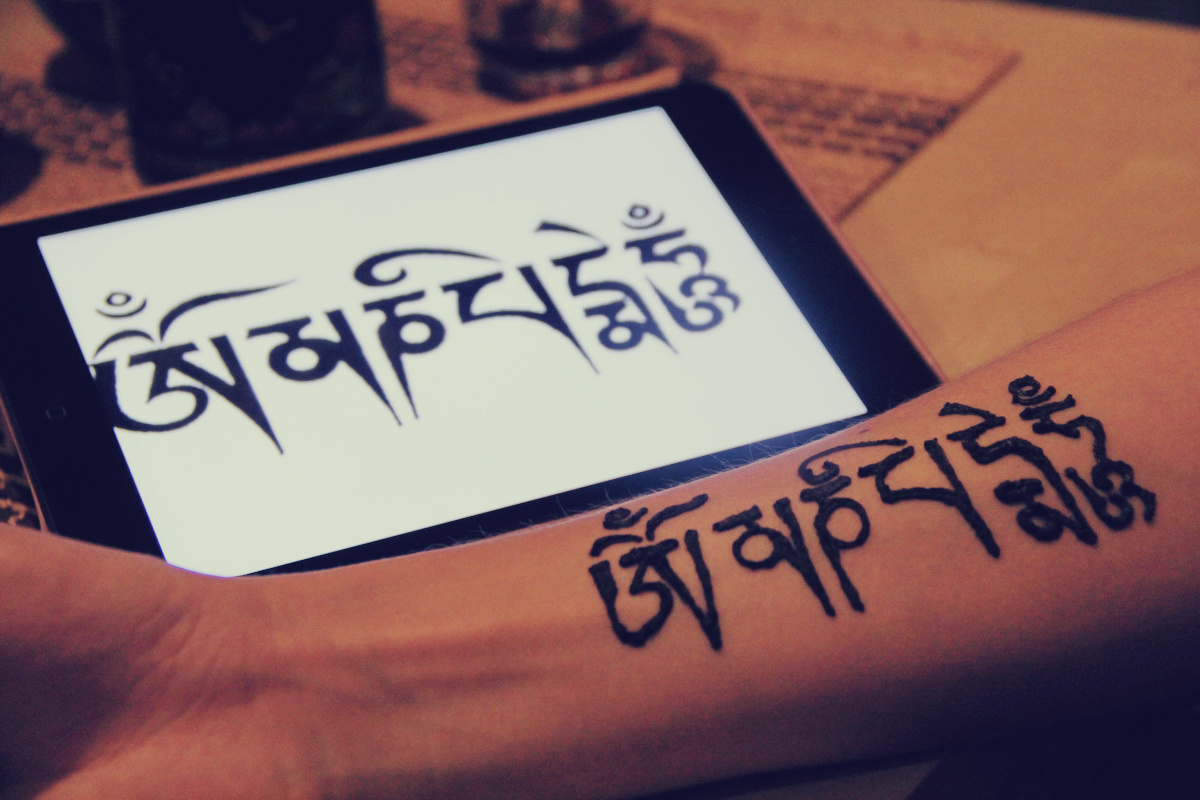 ཨོྃམཎིཔདྨེཧཱུྃ
ཨོྃམཎིཔདྨེཧཱུྃ